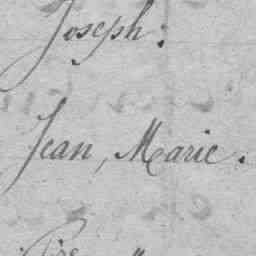 Joseph.
Jean, Marie.